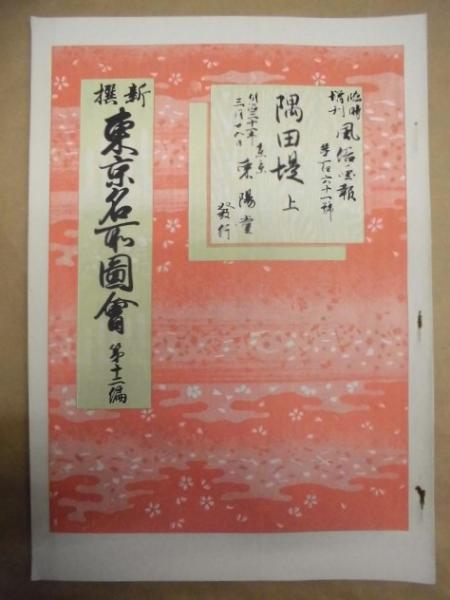 臨時
増刊
風俗画報
第百六十一號
隅田堤 上
明治三十一年
三月廿五日
東京
東陽堂
發行
新撰
東京名所圖會
第十二編